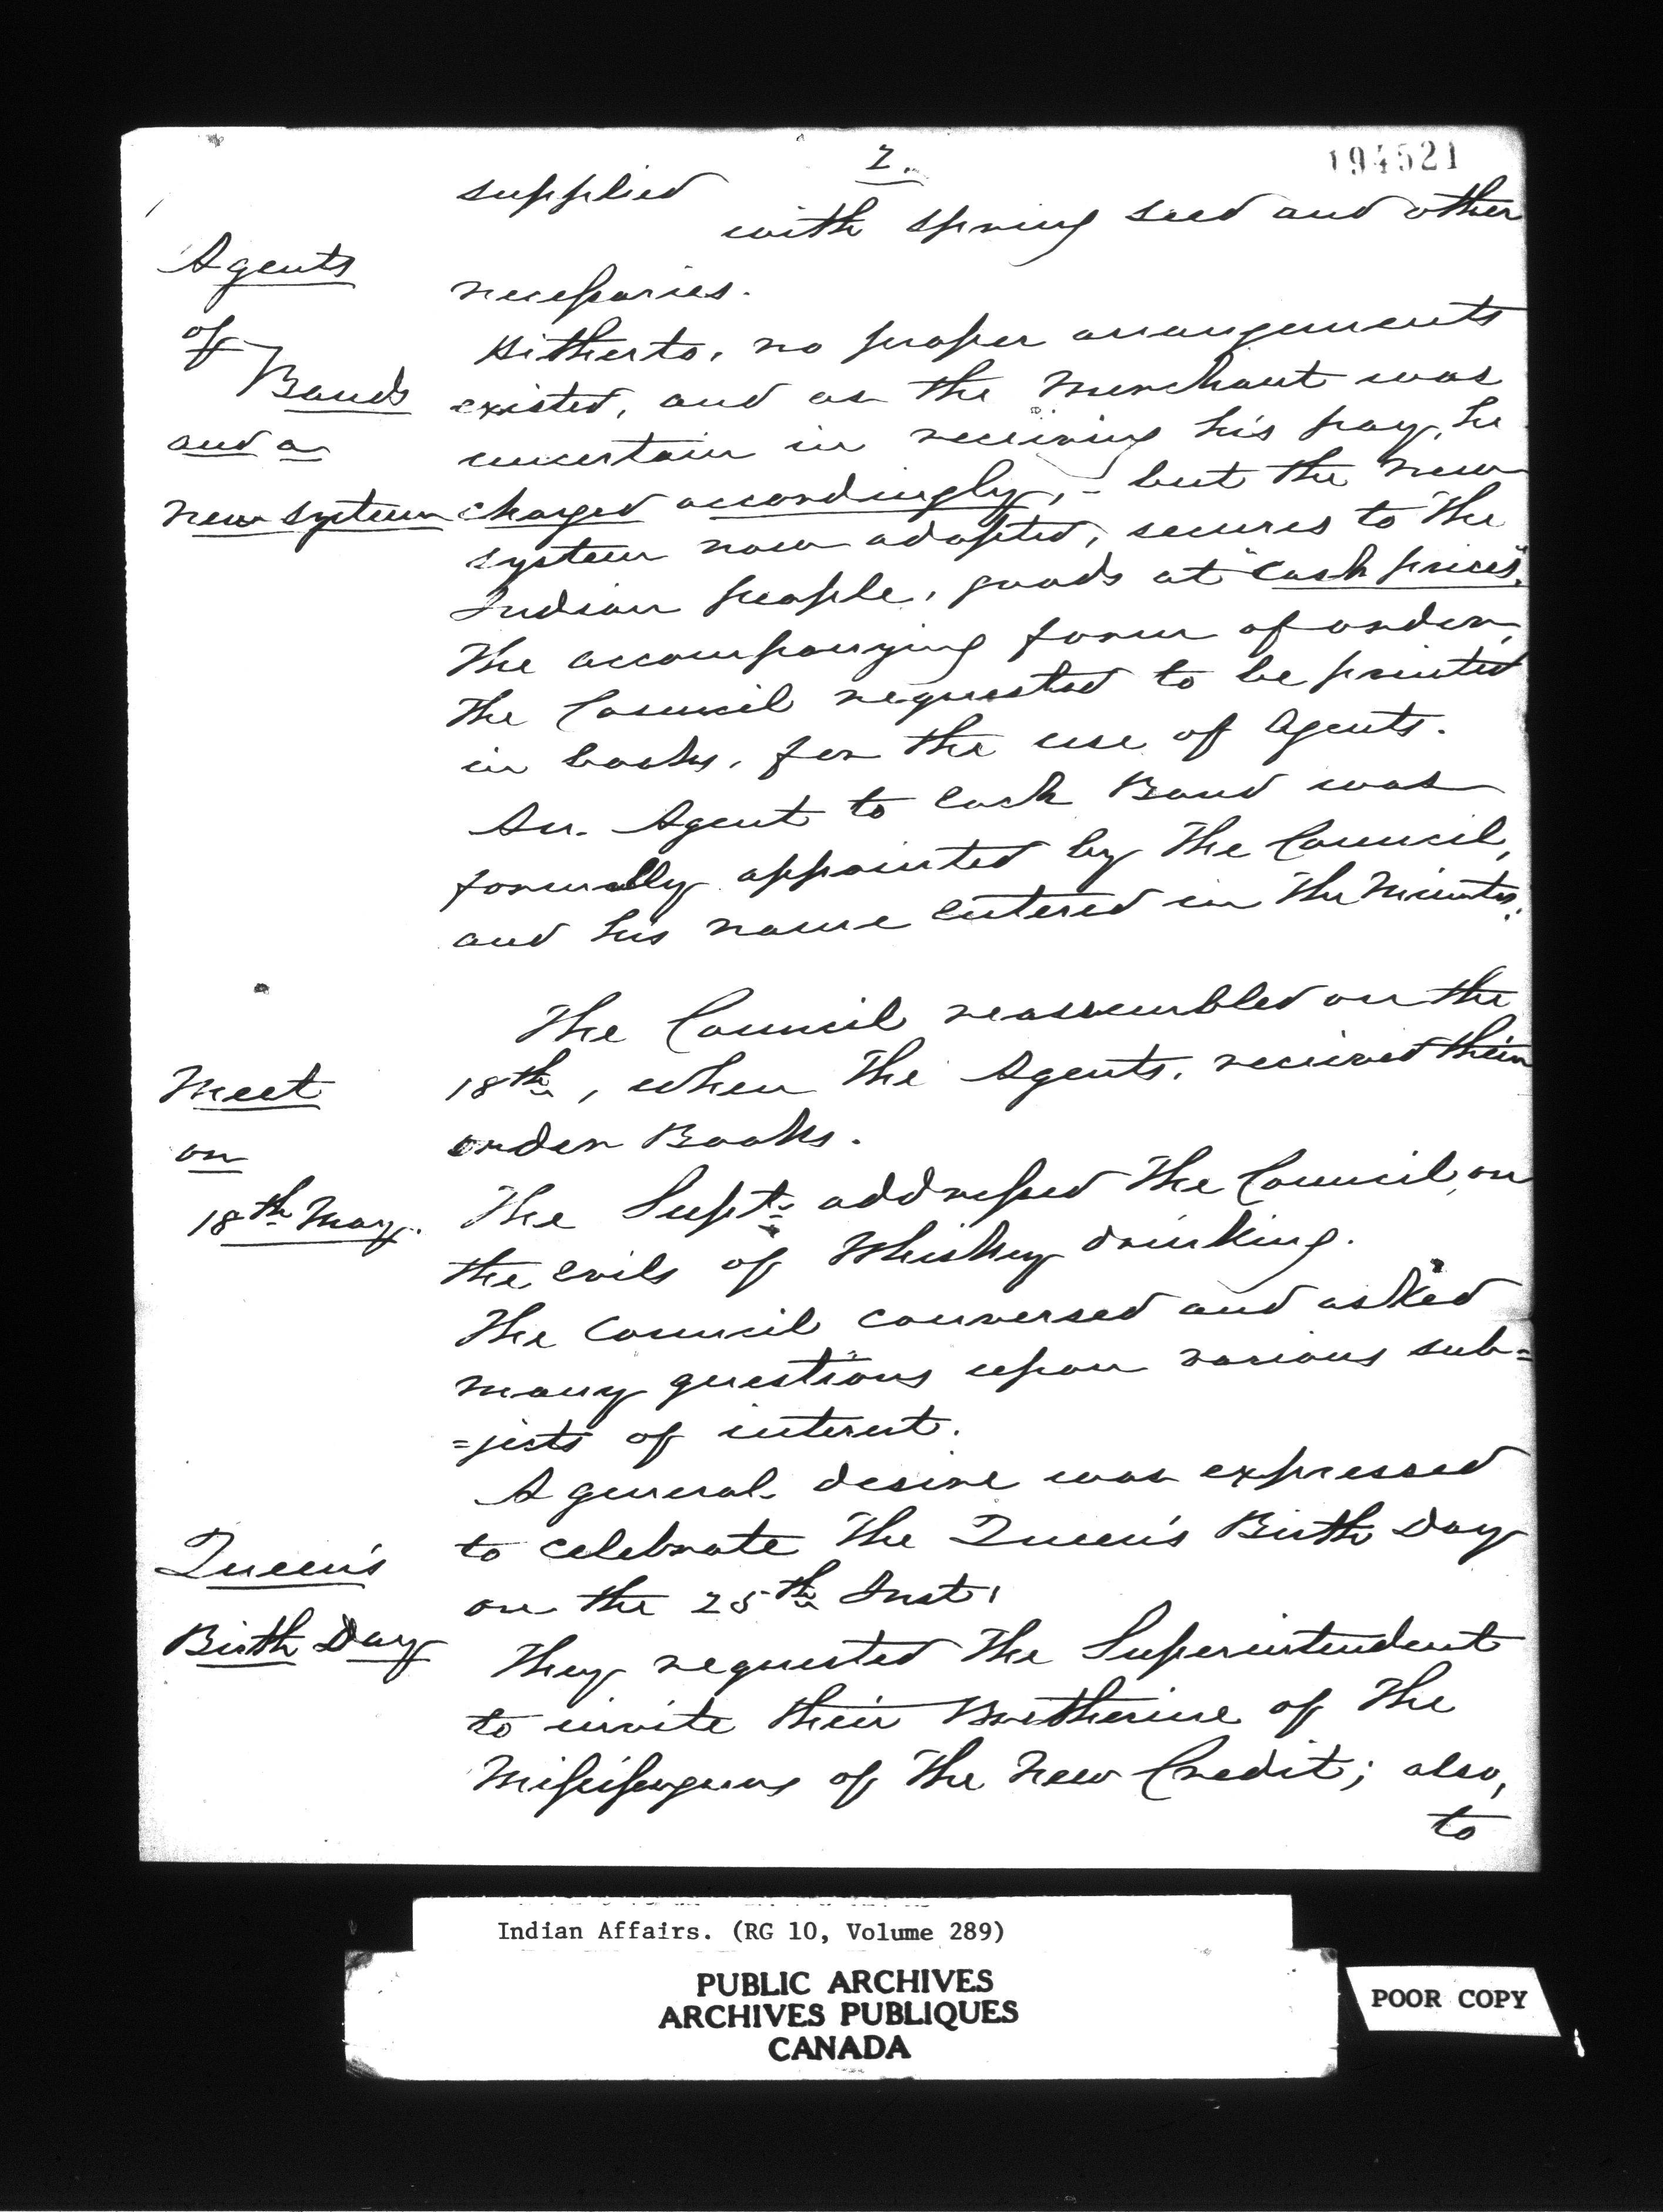 2.
194521
supplied
with spring seed and other
Agents
necessaries.
of
Hitherto, no proper arrangements
Bands
existed, and as the Merchant was
and a
uncertain in receiving his pay, he
new system
charged accordingly, - but the new
system now adopted, secures to the
Indian people, goods at "Cash prices".
The accompanying form of order,
the Council requested to be printed
in books, for the use of Agents.
An Agent to each Band was
formally appointed by the Council,
and his name entered in the Minutes.
The Council reassembled on the
Meet
18th, when the Agents, received their
on
order Books.
18th May.
The Supt. addressed the Council, on
the evils of Whiskey drinking.
The Council conversed and asked
many questions upon various sub=
=jects of interest.
A general desire was expressed
Queen's
to celebrate the Queen's Birth Day
on the 25th Inst.
Birth Day
They requested the Superintendent
to invite their Bretherine of the
Missisaguas of the New Credit; also,
to
Indian Affairs. (RG 10, Volume 289)
PUBLIC ARCHIVES
ARCHIVES PUBLIQUES
CANADA
POOR COPY